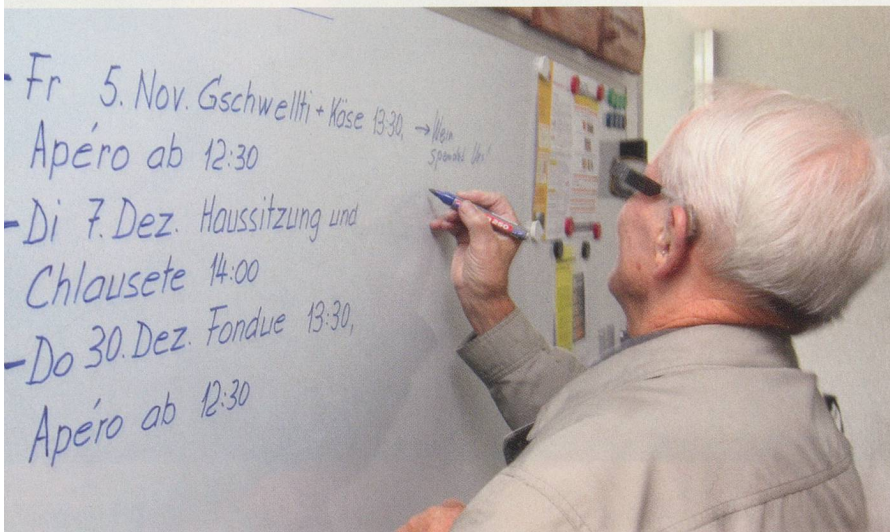 - Fr 5. Nov. Gschwellti + Käse 13:30, → Wein
spendet Urs!
Apéro ab 12:30
- Di 7. Dez. Haussitzung und
Chlausete 14:00
- Do 30. Dez. Fondue 13:30,
Apéro ab 12:30